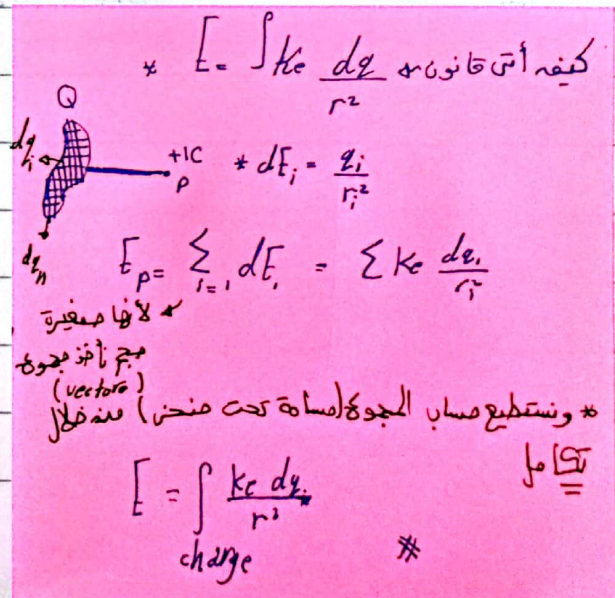 * كيف أتى قانون E = ∫ Ke dq / r²
Q
dq i
+1C
P
dq n
* dE i = q i / r i ²
E p = Σ i=1 dE i = Σ Ke dq i / r i ²
لأنها صغيرة
نأخذ مجموع
(vectors)
* ونستطيع حساب المجموع (مساحة تحت منحنى) من خلال
تكامل
E = ∫ Ke dq / r²
charge
#